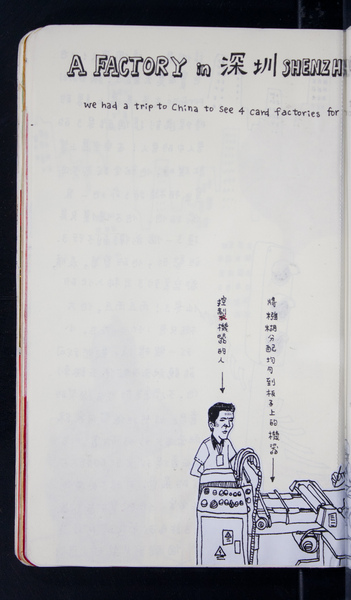 A FACTORY in 深圳 SHENZHE
we had a trip to China to see 4 card factories for
控制機器的人
將糨糊分配均勻到板子上的機器